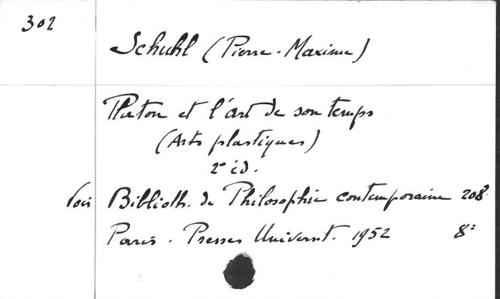 302
Schuhl (Pierre-Maxime)
Platon et l'art de son temps
(Arts plastiques)
2e éd.
Voir Biblioth. de Philosophie contemporaine 208
Paris. Presses Universit. 1952 8°